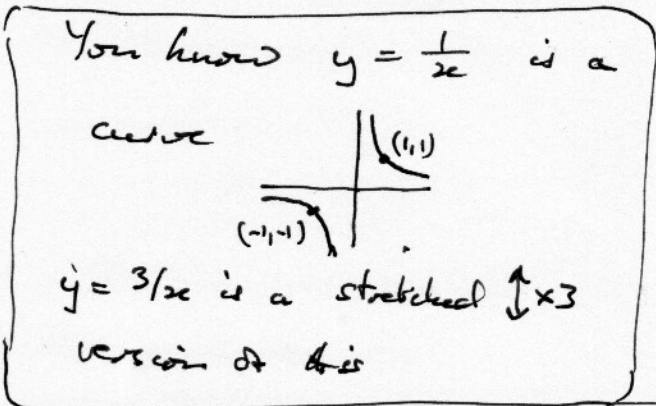 You know y = 1/x is a
curve
(1,1)
(-1,-1)
y = 3/x is a stretched ↕ ×3
version of this